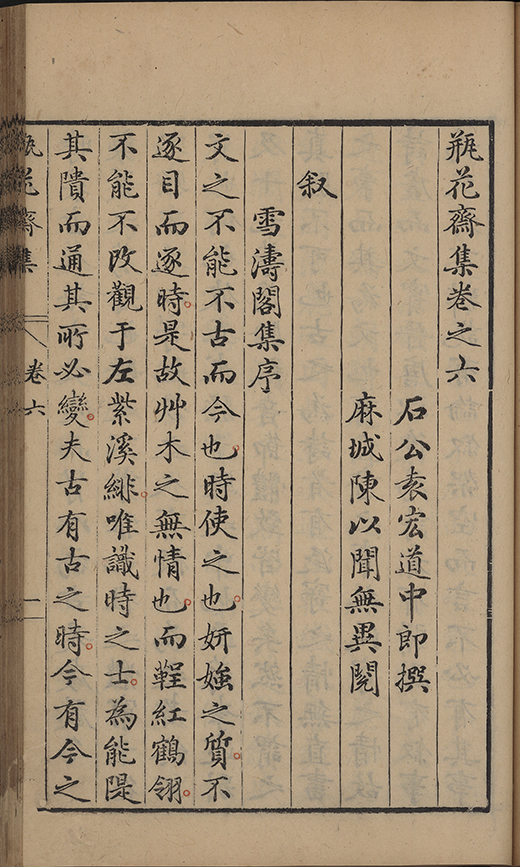 瓶花齋集卷之六
石公袁宏道中郎撰
麻城陳以聞無異閱
叙
雪濤閣集序
文之不能不古而今也時使之也妍媸之質不
逐目而逐時是故艸木之無情也而鞓紅鶴翎
不能不改觀于左紫溪緋唯識時之士為能隄
其隤而通其所必變夫古有古之時今有今之
瓶花齋集 卷六 一